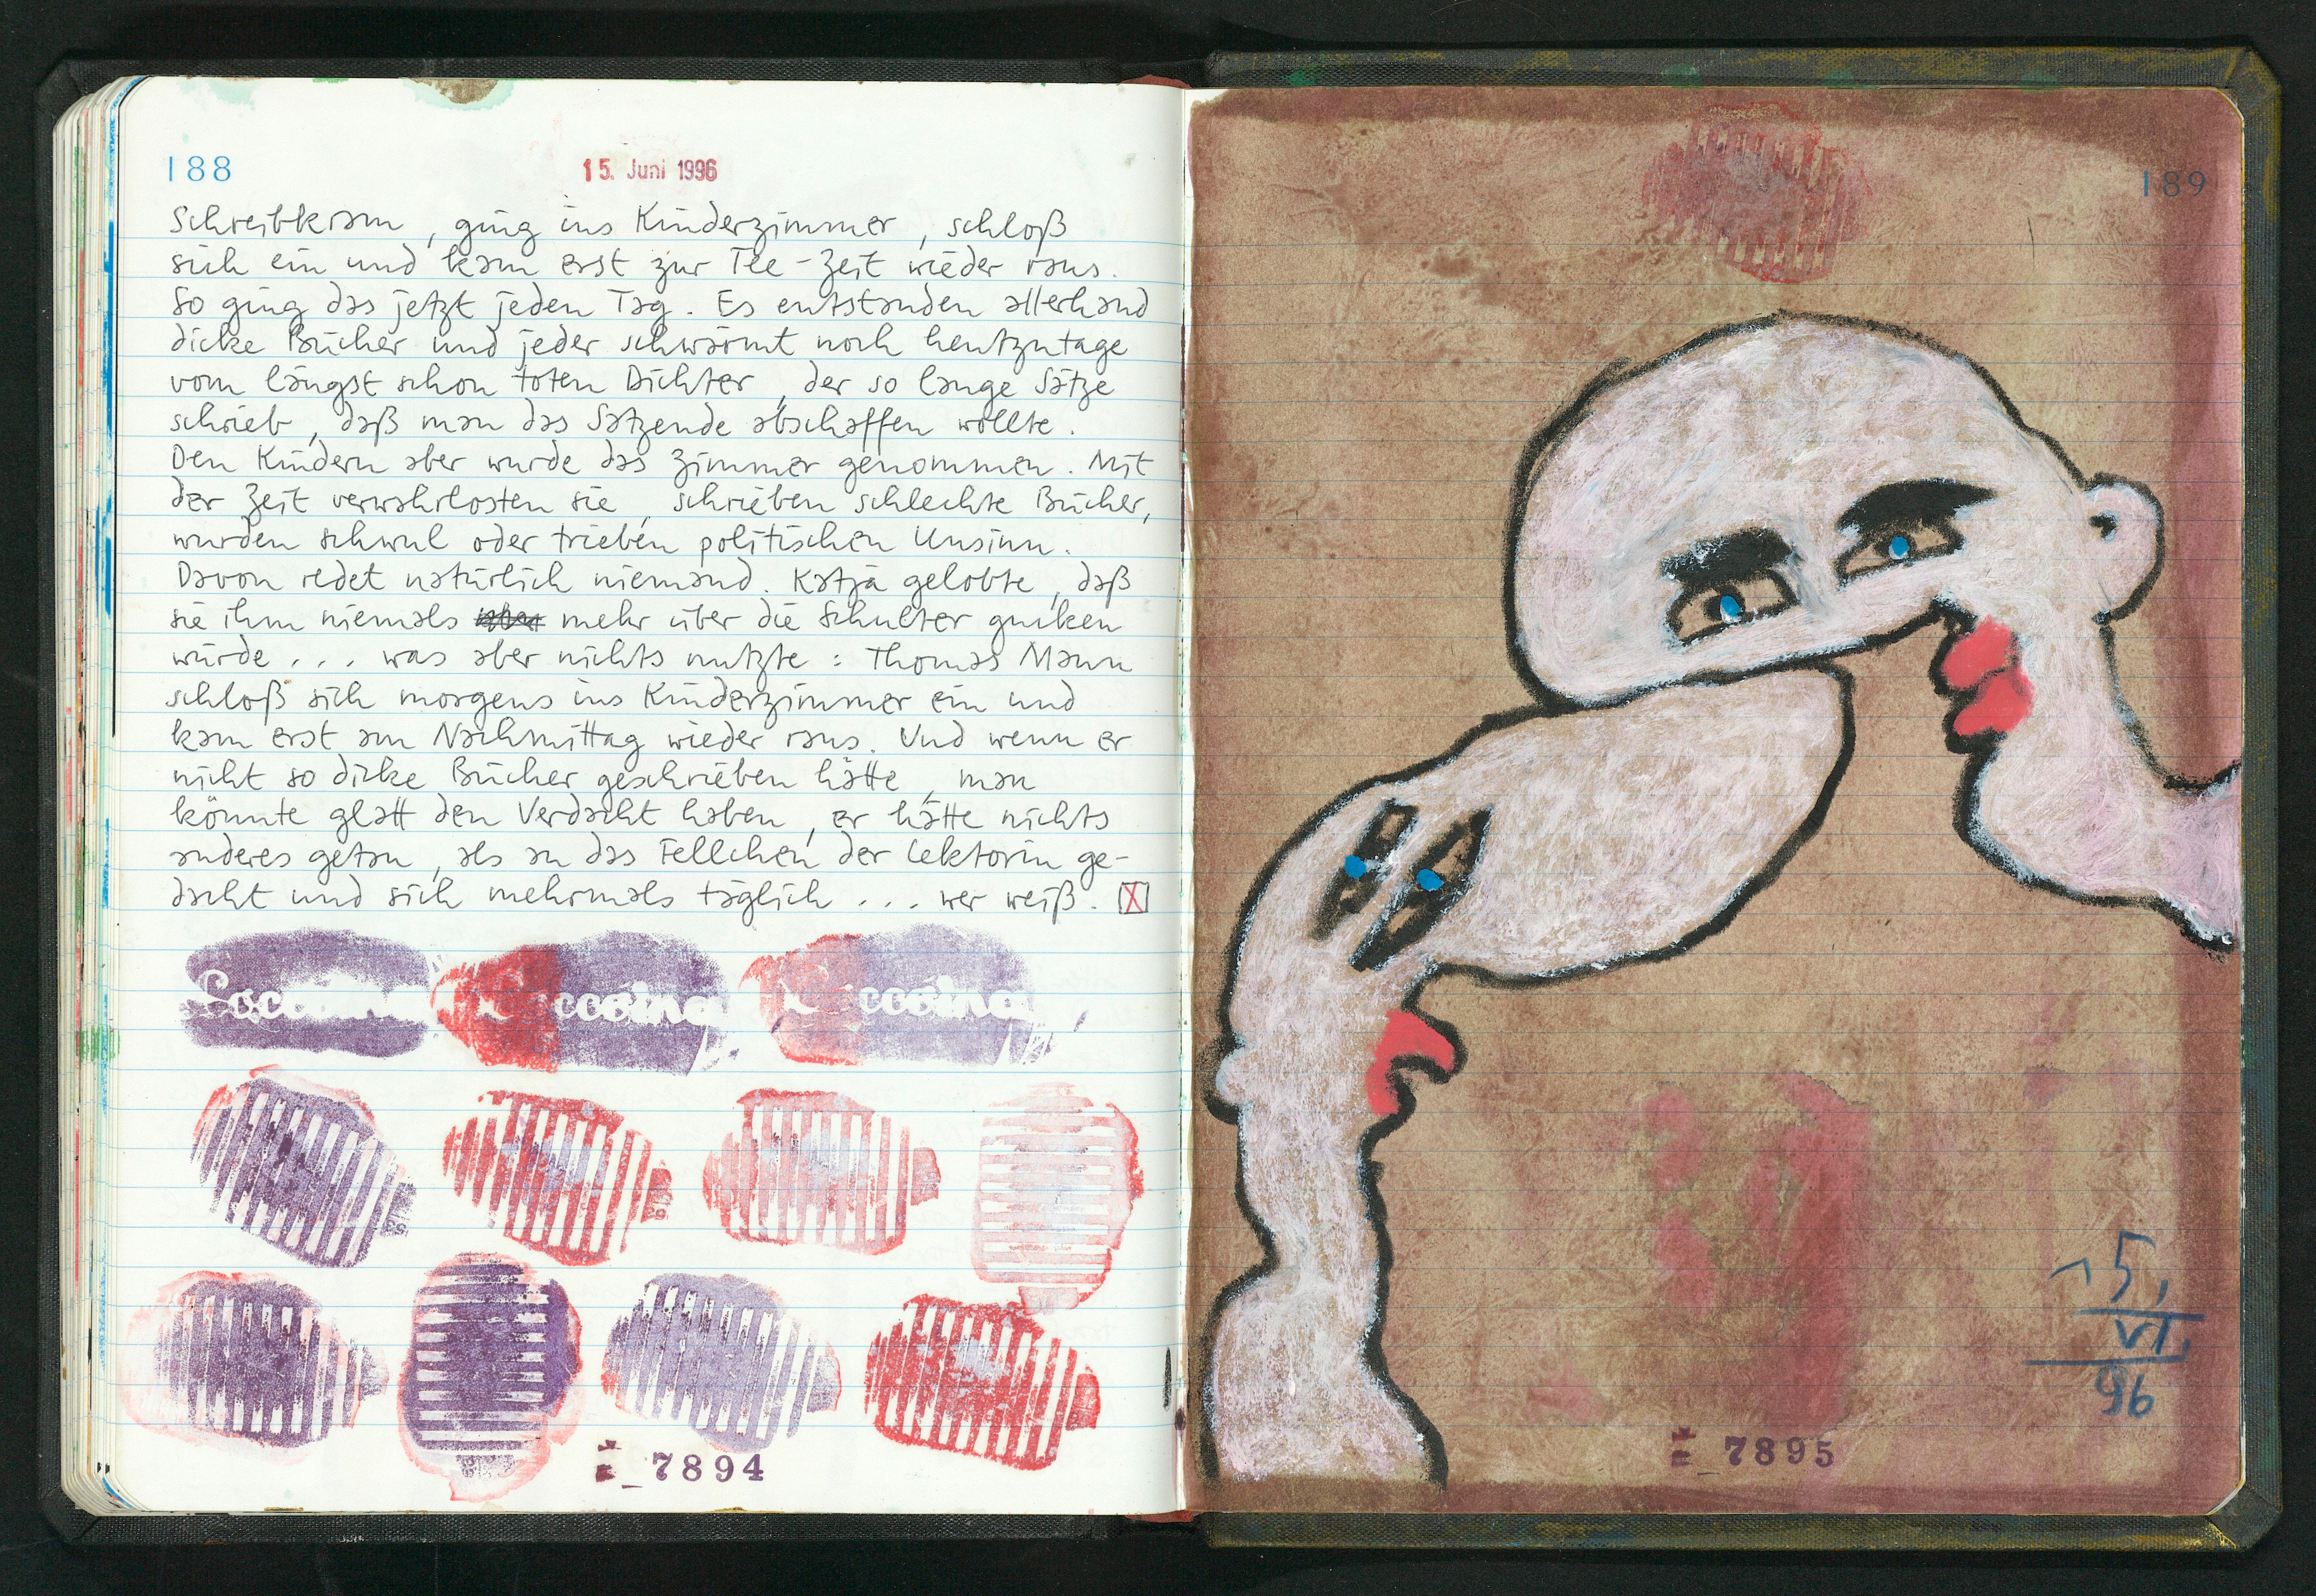 188
15. Juni 1996
Schreibkram, ging ins Kinderzimmer, schloß
sich ein und kam erst zur Tee-Zeit wieder raus.
So ging das jetzt jeden Tag. Es entstanden allerhand
dicke Bücher und jeder schwärmt noch heutzutage
vom längst schon toten Dichter, der so lange Sätze
schrieb, daß man das Satzende abschaffen wollte.
Den Kindern aber wurde das Zimmer genommen. Mit
der Zeit verwahrlosten sie, schrieben schlechte Bücher,
wurden schwul oder trieben politischen Unsinn.
Davon redet natürlich niemand. Katja gelobte, daß
sie ihm niemals mehr über die Schulter gucken
würde ... was aber nichts nutzte: Thomas Mann
schloß sich morgens ins Kinderzimmer ein und
kam erst am Nachmittag wieder raus. Und wenn er
nicht so dicke Bücher geschrieben hätte, man
könnte glatt den Verdacht haben, er hätte nichts
anderes getan, als an das Fellchen der Lektorin ge-
dacht und sich mehrmals täglich ... wer weiß.
Coccoina Coccoina Coccoina
7894
189
15.
VI.
96
7895